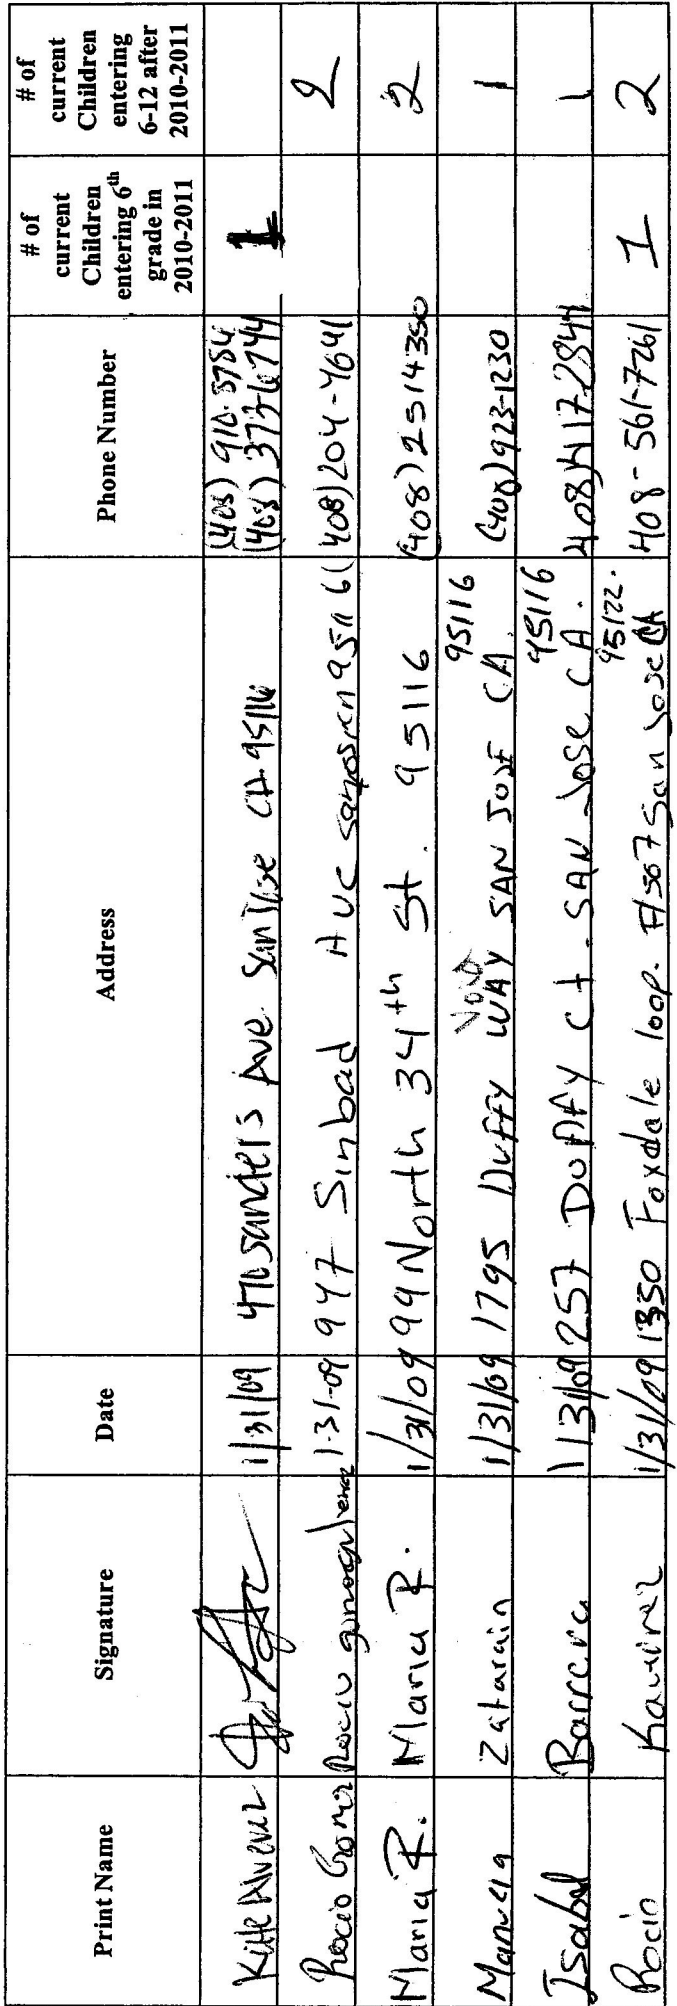 Print Name
Signature
Date
Address
Phone Number
# of
current
Children
entering 6th
grade in
2010-2011
# of
current
Children
entering
6-12 after
2010-2011
1/31/09 470 Sanders Ave San Jose CA 95116 (408) 910-5754
(408) 373-6744 1
Rocio Gomez Rocio 1-31-09 947 Sinbad Ave sanjose 95116 (408)204-4641 2
Maria R. Maria R. 1/31/09 99 North 34th St. 95116 (408) 2514350 2
Manuela Zatarain 1/31/09 1795 Duffy WAY SAN JOSE CA. 95116 (408)923-1230 1
Isabel Barrera 1/31/09 257 Duffy Ct. SAN Jose CA. 95116 408)417-2844 1
Rocio Ramirez 1/31/09 1350 Foxdale loop. #507 San Jose CA 95122. 408-561-7261 1 2